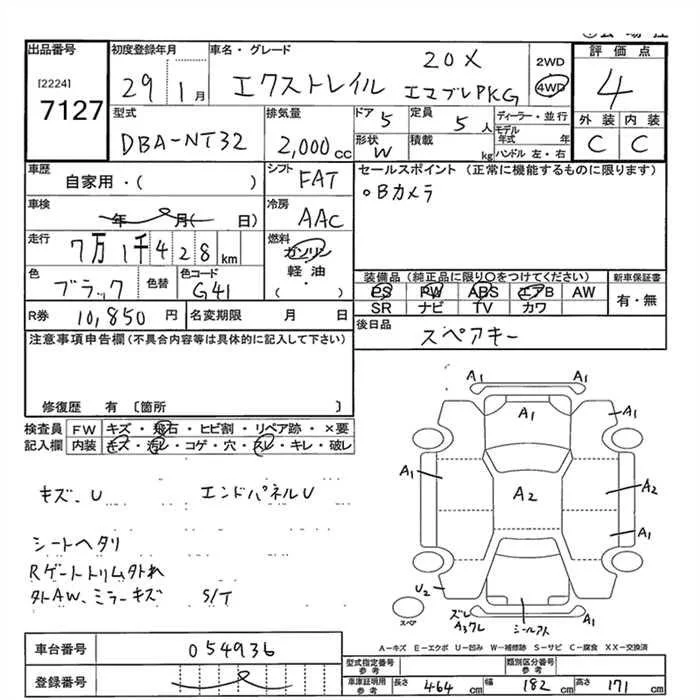 出品番号
[2224]
7127
初度登録年月
29 1月
車名・グレード
20X
エクストレイル エマブレPKG
2WD
4WD
評価点
4
外装 内装
C C
型式
DBA-NT32
排気量
2,000cc
ドア 5
定員 5人
形状 W
積載 kg
ディーラー・並行
モデル年式 年
ハンドル 左・右
車歴
自家用・( )
シフト FAT
セールスポイント (正常に機能するものに限ります)
。Bカメラ
車検
年 月( 日)
冷房 AAC
走行
7万1千428km
燃料
ガソリン
軽油
( ・ )
色
ブラック
色替
色コード
G41
装備品(純正品に限り○をつけてください)
PS PW ABS エアB AW
SR ナビ TV カワ
新車保証書
有・無
R券 10,850円
名変期限 月 日
後日品
スペアキー
注意事項申告欄(不具合内容等は具体的に記入して下さい)
修復歴 有 〔箇所 〕
検査員記入欄
FW キズ・飛石・ヒビ割・リペア跡・×要
内装 キズ・汚レ・コゲ・穴・スレ・キレ・破レ
キズ、U エンドパネルU
シートヘタリ
Rゲートトリム外れ
外AW、ミラーキズ S/T
A1 A1
A1 A1
A1 A2 A2
A1
U2
スペア
ズレ
A3ワレ
シールアト
A1
A-キズ E-エクボ U-凹み W-補修跡 S-サビ C-腐食 XX-交換済
車台番号 054936
登録番号
型式指定番号 参考
類別区分番号 参考
車庫証明用 参考 長さ 464cm 幅 182cm 高さ 171cm